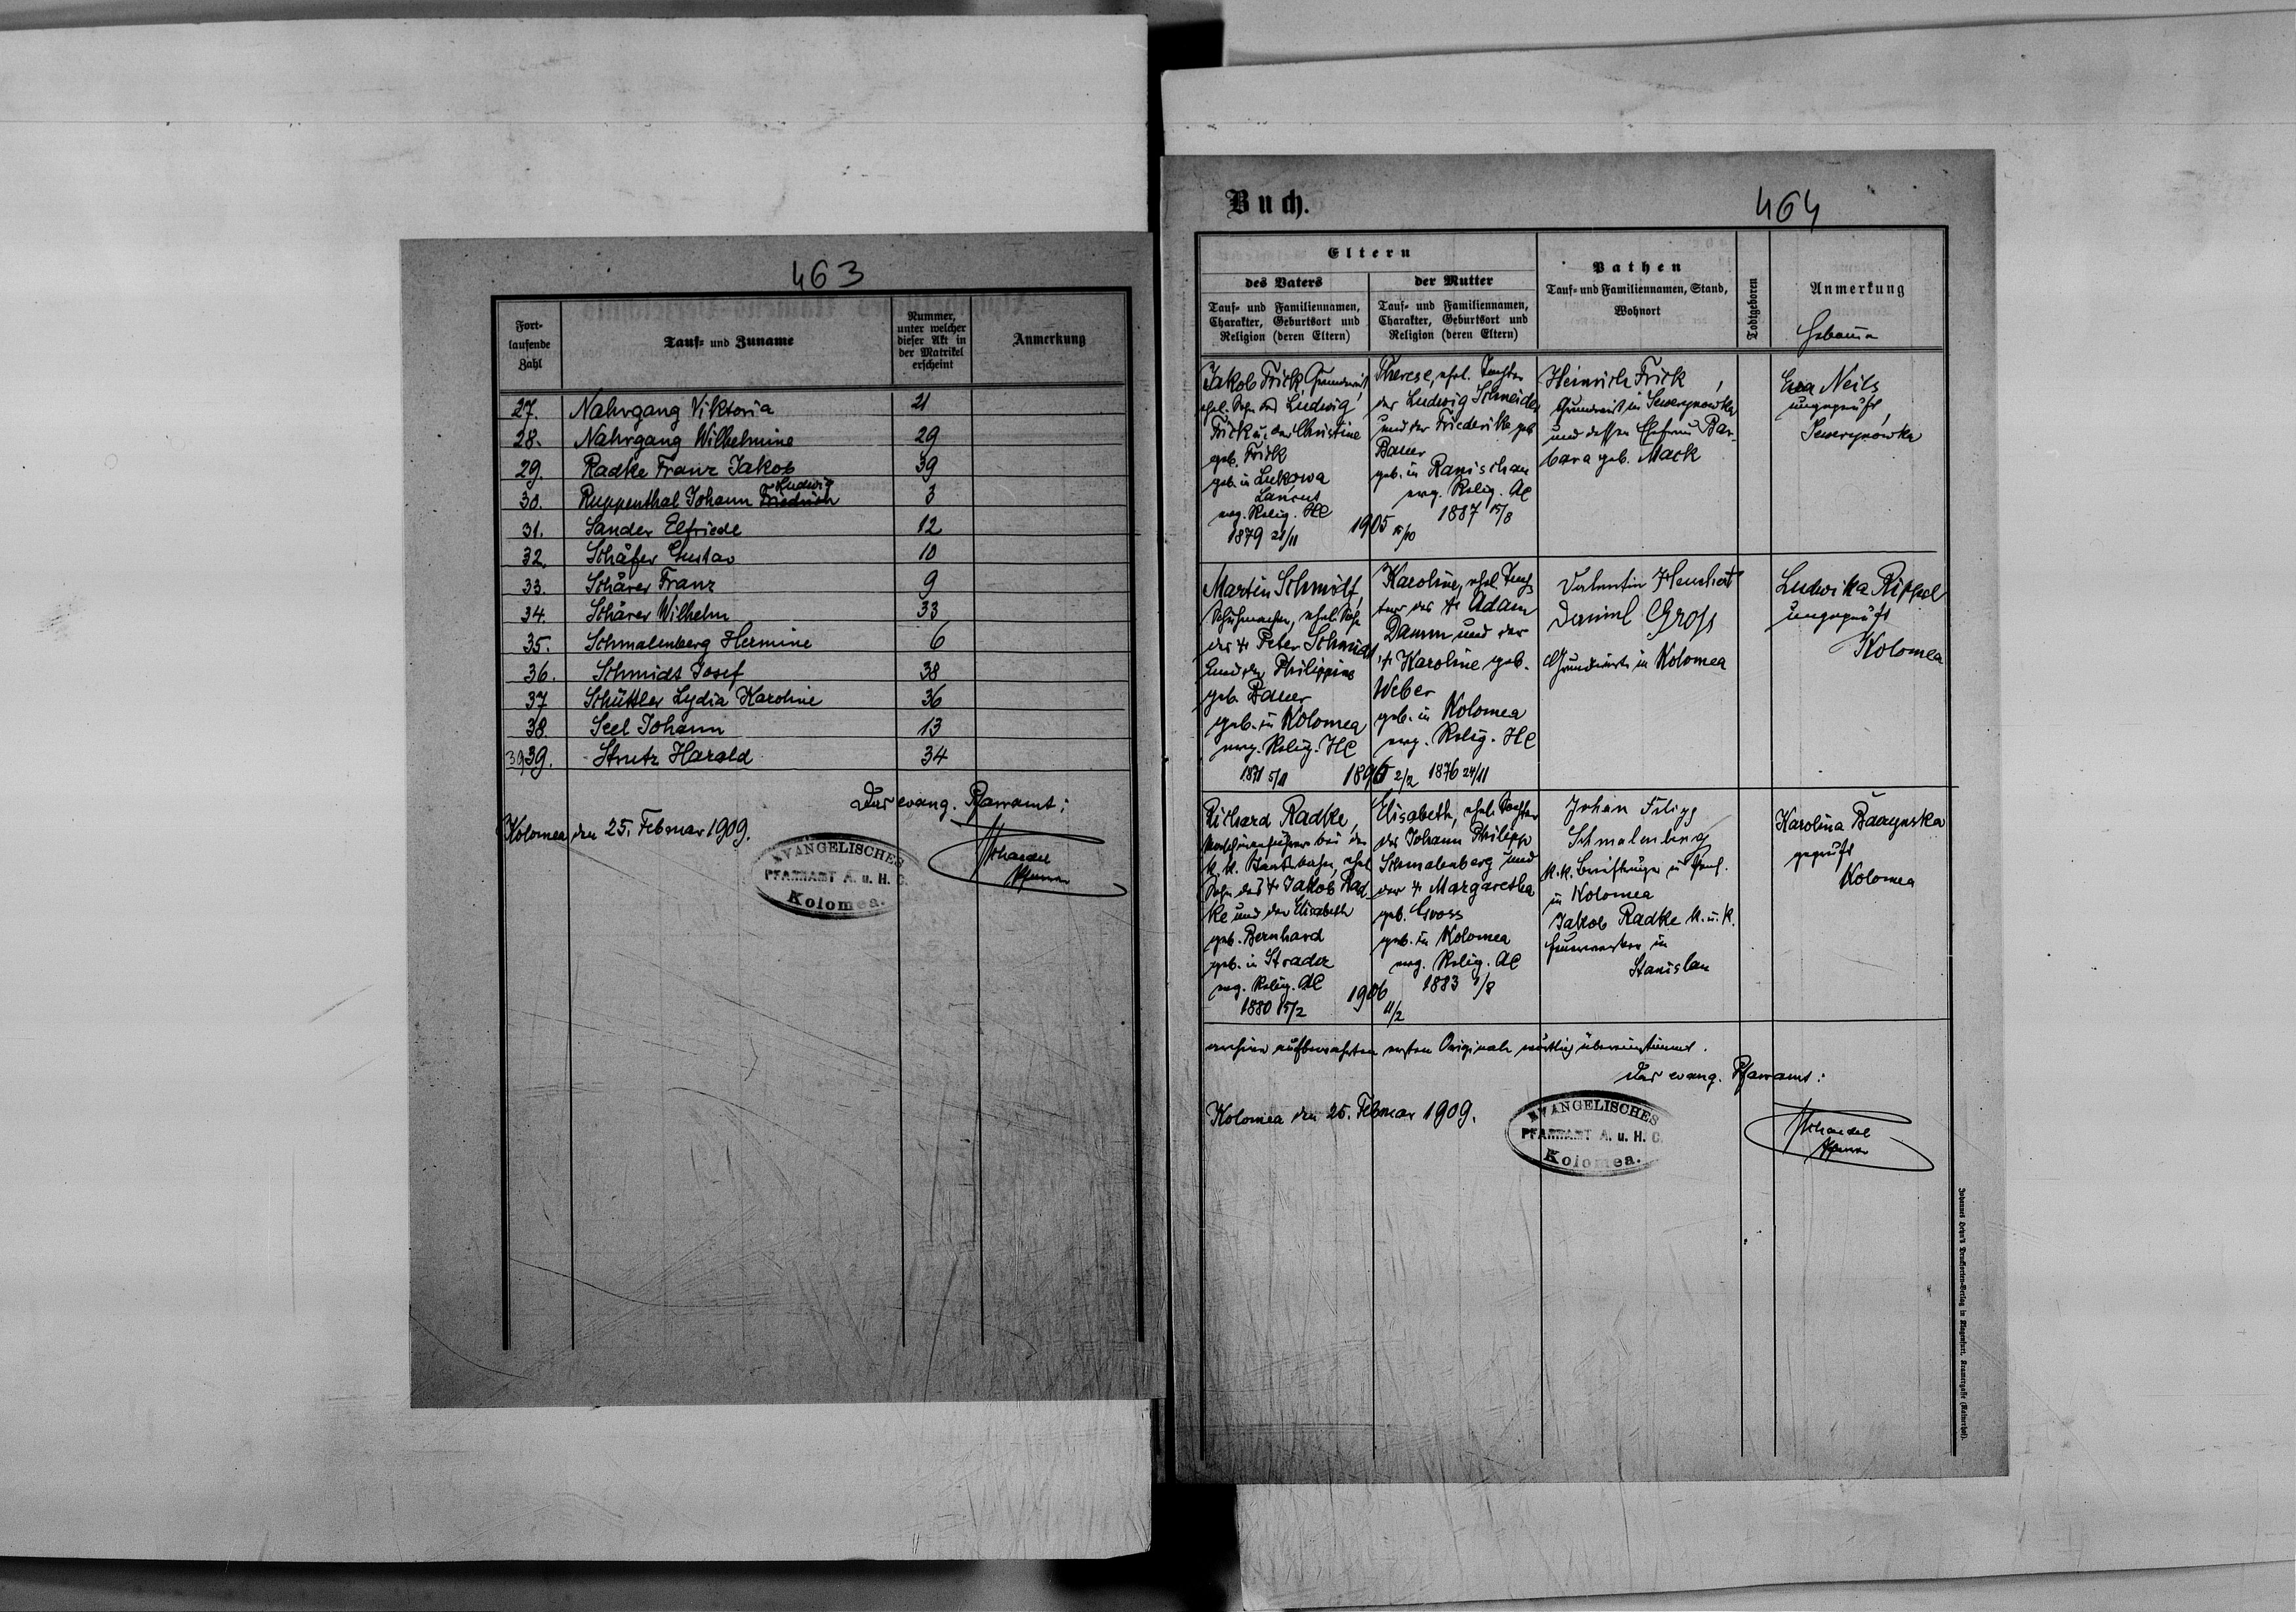 463
Fort-
laufende
Zahl
Tauf- und Zuname
Nummer,
unter welcher
dieser Akt in
der Matrikel
erscheint
Anmerkung
27. Nahrgang Viktoria 21
28. Nahrgang Wilhelmine 29
29. Radke Franz Jakob 39
Ludwig
30. Ruppenthal Johann Friedrich 3
31. Sander Elfriede 12
32. Schäfer Gustav 10
33. Schärer Franz 9
34. Schärer Wilhelm 33
35. Schmalenberg Hermine 6
36. Schmidt Josef 38
37 Schüttler Lydia Karoline 36
38. Seel Johann 13
39 39. Strutz Harald 34
Das evang. Pfarramt:
Kolomea den 25. Februar 1909.
EVANGELISCHES
PFARRAMT A. u. H. C.
Kolomea.
Pfarrer
Buch.
464
Eltern
des Vaters
Tauf- und Familiennamen,
Charakter, Geburtsort und
Religion (deren Eltern)
der Mutter
Tauf- und Familiennamen,
Charakter, Geburtsort und
Religion (deren Eltern)
Pathen
Tauf- und Familiennamen, Stand,
Wohnort
Todtgeboren
Anmerkung
Jakob Frick Grundwirt
ehel. Sohn des Ludwig
Frick u. der Christine
geb. Frick
geb. in Lukowa
evg. Relig. HC
1879 21/11
1905 15/10
Therese, ehel. Tochter
des Ludwig Schneider
und der Friederike geb.
Bauer
geb. in Ranischau
evg. Relig. AC
1887 15/8
Heinrich Frick,
Grundwirt in Sewerynowka
und dessen Ehefrau Bar-
bara geb. Mack
Eva Neils
ungeprüft,
Sewerynowka
Martin Schmidt,
Schuhmacher, ehel. Sohn
des † Peter Schmidt
und der Philippine
geb. Bauer
geb. in Kolomea
evg. Relig. HC
1871 5/11
1896 2/2
Karoline, ehel. Toch-
ter des † Adam
Damm und der
† Karoline geb.
Weber
geb. in Kolomea
evg. Relig. HC
1876 24/11
Valentin
Daniel Gross
Grundwirte in Kolomea
Ludwika Rippel
ungeprüft
Kolomea
Richard Radke,
Maschinenführer bei der
k. k. Staatsbahn, ehel.
Sohn des † Jakob Rad-
ke und der Elisabeth
geb. Bernhard
geb. in Stradcz
evg. Relig. AC
1880 15/2
1906
11/2
Elisabeth, ehel. Tochter
des Johann Philipp
Schmalenberg und
der † Margaretha
geb. Gross
geb. in Kolomea
evg. Relig. AC
1883 1/8
Johan Filipp
Schmalenberg
in Kolomea
Jakob Radke k. u. k.
Feuerwerker in
Stanislau
Karolina
geprüft
Kolomea
archive aufbewahrten ersten Originale wörtlich übereinstimmt.
Das evang. Pfarramt:
Kolomea den 25. Februar 1909.
EVANGELISCHES
PFARRAMT A. u. H. C.
Kolomea.
Pfarrer